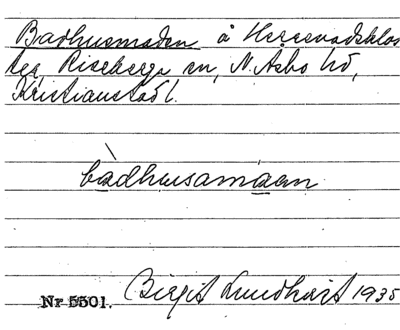 Badhusmaden å Herrevadsklos
ter, Riseberga sn, N. Åsbo hd,
Kristianstad l.
bàdhusamàen
Nr 5501. Birgit Lundkvist 1935